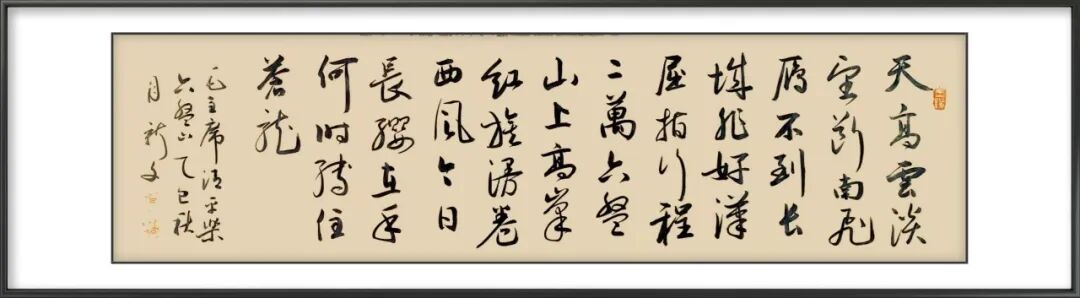 天高雲淡
望斷南飛
雁不到长
城非好漢
屈指行程
二萬六盤
山上高峯
紅旗漫卷
西風今日
長纓在手
何时縛住
蒼龍
毛主席清平樂
六盤山乙巳秋
月